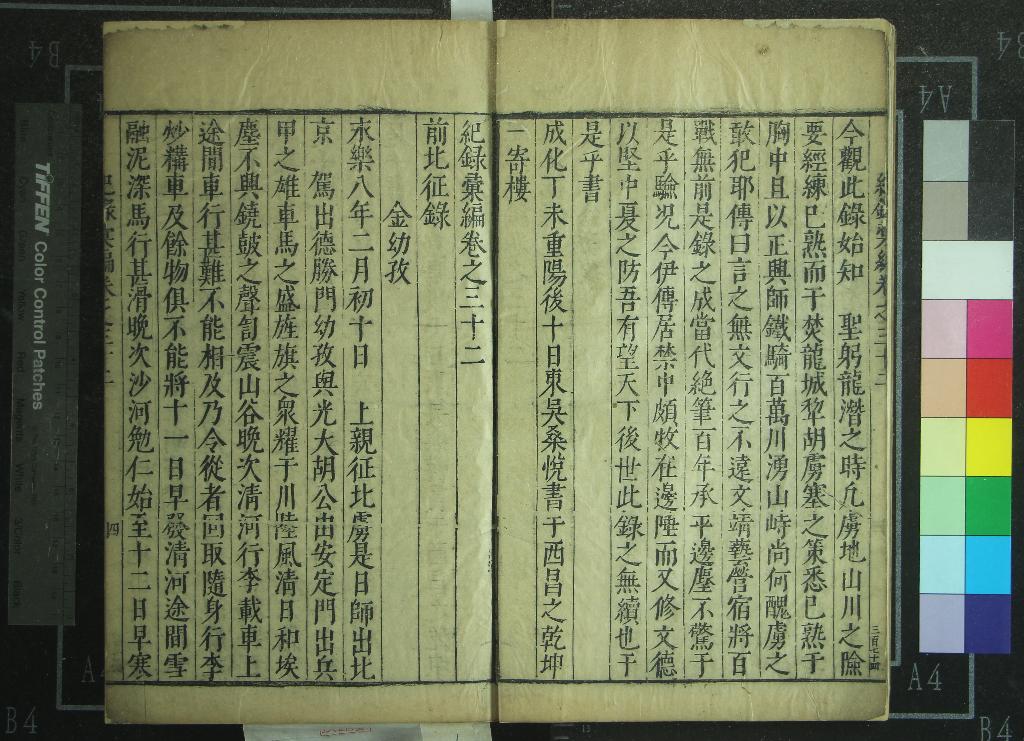 今觀此錄始知 聖躬龍潛之時凢虜地山川之險
要經練已熟而于焚龍城犂胡虜塞之策悉已熟于
胸中且以正興師鐵騎百萬川湧山峙尚何醜虜之
敢犯耶傳曰言之無文行之不遠文靖藝營宿將百
戰無前是錄之成當代絶筆百年承平邊塵不驚于
是乎驗况今伊傳居禁中頗牧在邊陲而又修文德
以堅中夏之防吾有望天下後世此錄之無續也于
是乎書
成化丁未重陽後十日東吳桑悅書于西昌之乾坤
一寄樓
紀錄彙編卷之三十二
前北征錄
金幼孜
永樂八年二月初十日 上親征北虜是日師出北
京 駕出德勝門幼孜與光大胡公由安定門出兵
甲之雄車馬之盛旌旗之衆耀于川陸風清日和埃
塵不興鐃鼓之聲訇震山谷晚次清河行李載車上
途間車行甚難不能相及乃令從者囘取隨身行李
炒糒車及餘物俱不能將十一日早發清河途間雪
融泥深馬行甚滑晚次沙河勉仁始至十二日早寒
紀錄彙編卷之三十二
四
三百七十四
TIFFEN Color Control Patches
A4
B4